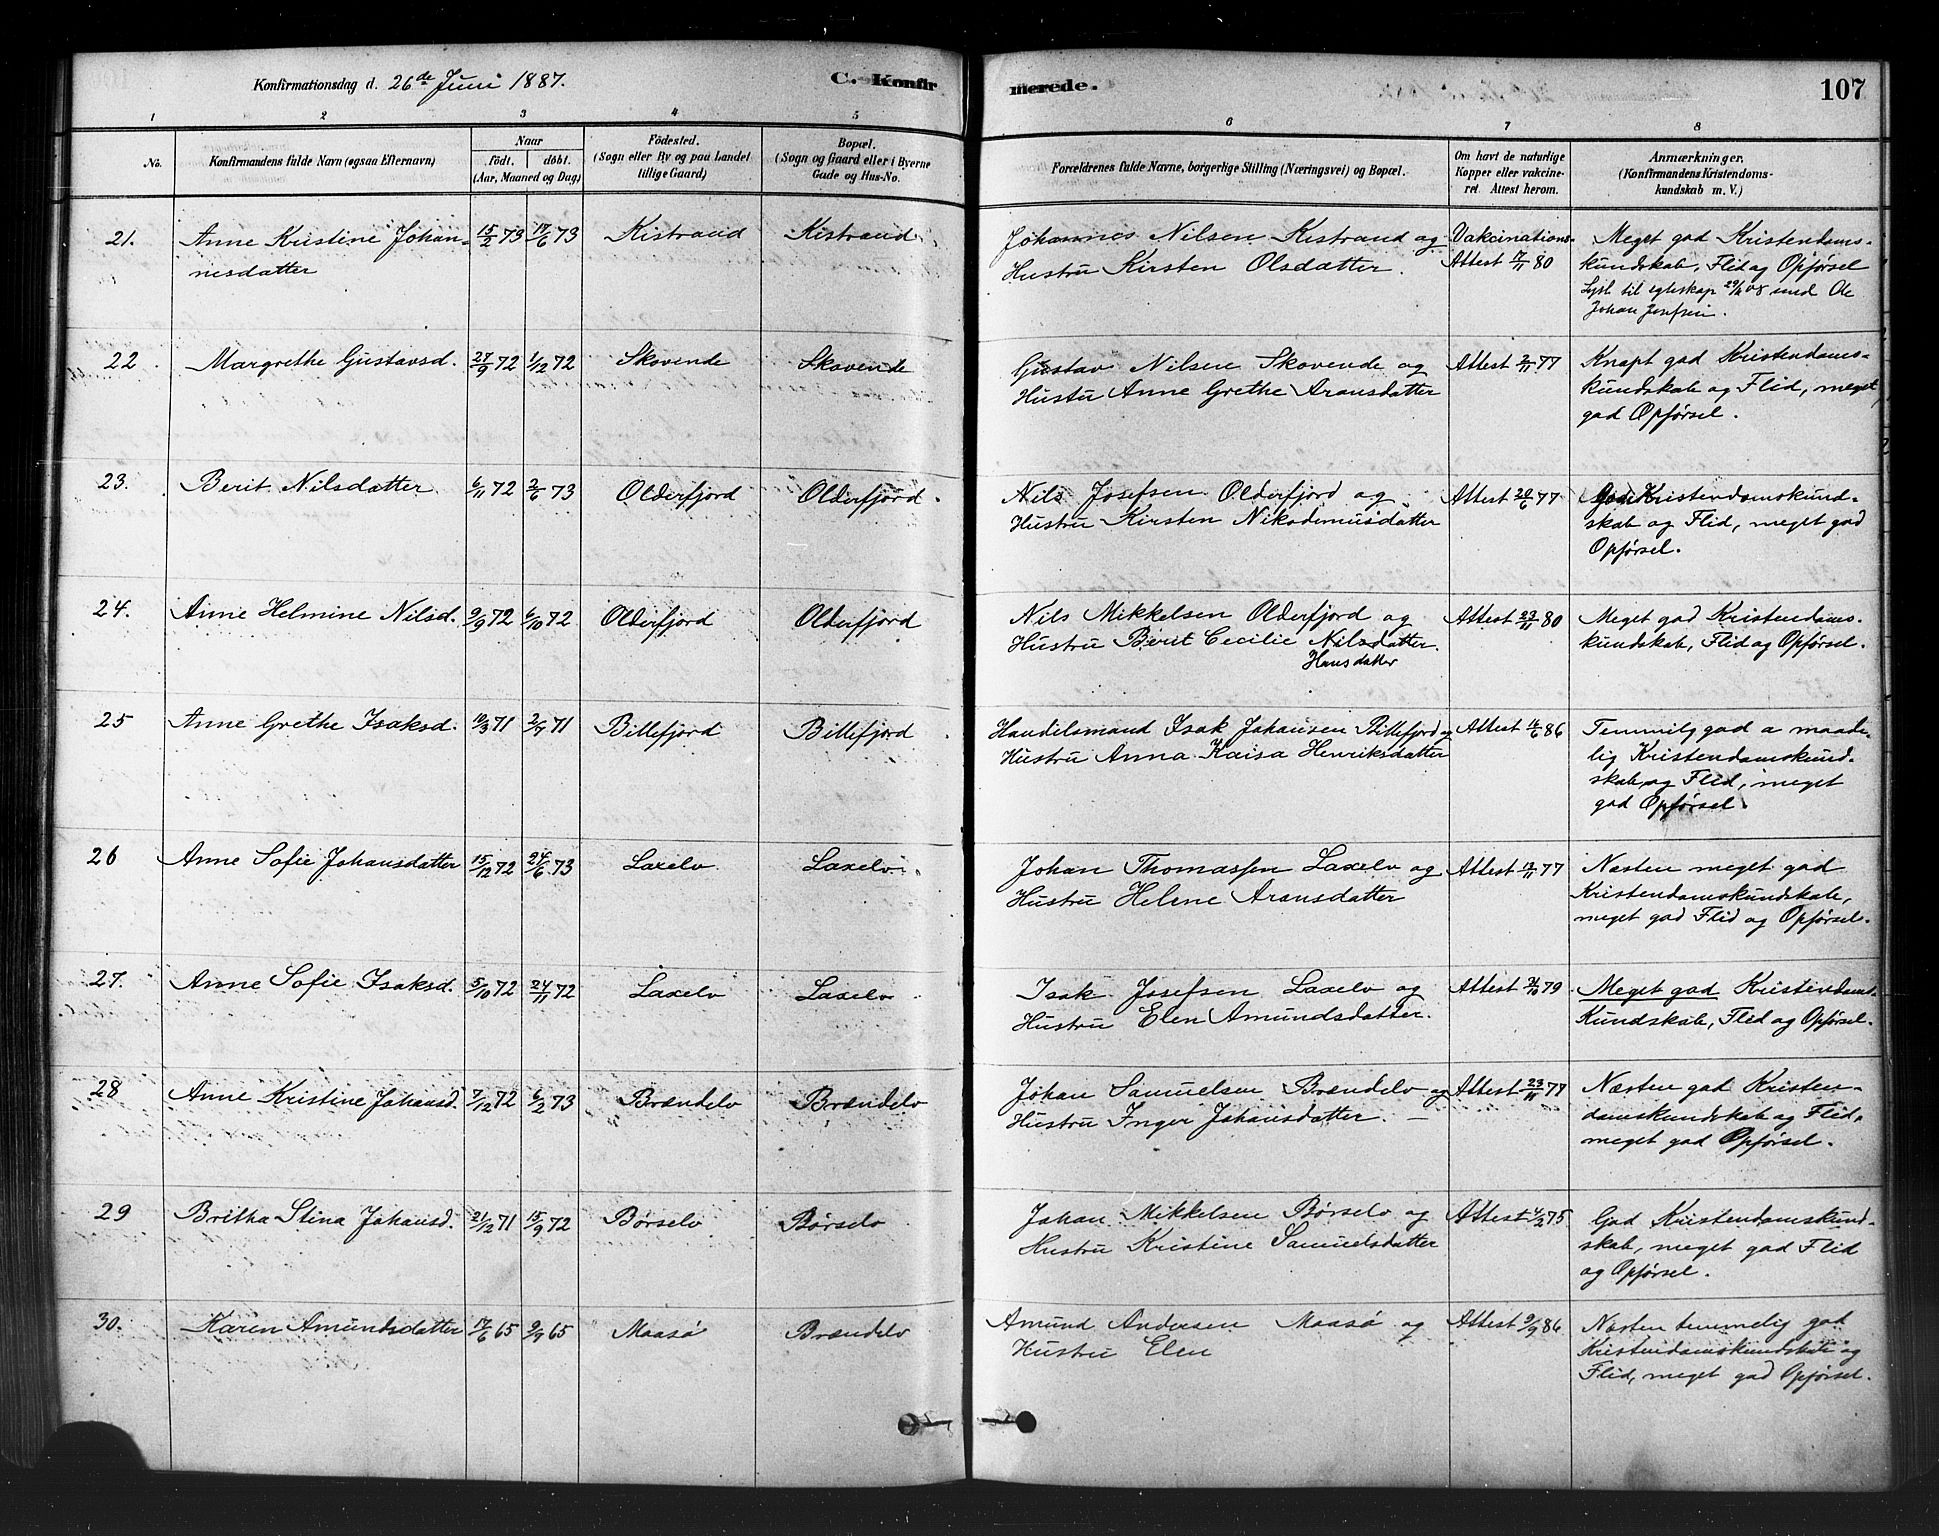 Konfirmationsdag d. 26de Juni 1887.
C. Konfirmerede.
107
1 2 3 4 5 6 7 8
No.
Konfirmandens fulde Navn (ogsaa Efternavn)
Naar
født. | døbt.
(Aar, Maaned og Dag)
Fødested.
(Sogn eller By og paa Landet
tillige Gaard)
Bopæl.
(Sogn og Gaard eller i Byerne
Gade og Hus-No.
Forældrenes fulde Navne, borgerlige Stilling (Næringsvei) og Bopæl.
Om havt de naturlige
Kopper eller vakcine-
ret. Attest herom.
Anmærkninger.
(Konfirmandens Kristendoms-
kundskab m. V.)
21. Anne Kristine Johan-
nesdatter
15/2 73 17/6 73 Kistrand Kistrand
Johannes Nilsen Kistrand og
Hustru Kirsten Olsdatter.
Vakcinations-
Attest 17/11 80
Meget god Kristendoms-
kundskab, Flid og Opførsel
Lyst til egteskap 29/11 08 med Ole
Johan Josefsen.
22. Margrethe Gustavsd. 27/9 72 1/12 72 Skovende Skovende
Gustav Nilsen Skovende og
Hustu Anne Grethe Aransdatter
Attest 2/11 77
Knapt god Kristendoms-
kundskab og Flid, meget
god Opførsel.
23. Berit Nilsdatter 6/11 72 2/6 73 Olderfjord Olderfjord.
Nils Josefsen Olderfjord og
Hustru Kirsten Nikodemusdatter
Attest 20/6 77
God Kristendomskund-
skab og Flid, meget god
Opførsel.
24. Anne Helmine Nilsd. 9/9 72 6/10 72 Olderfjord Olderfjord
Nils Mikkelsen Olderfjord og
Hustru Berit Cecilie Nilsdatter.
Hansdatter
Attest 23/11 80
Meget god Kristendoms-
kundskab, Flid og Opførsel.
25 Anne Grethe Isaksd. 10/3 71 2/7 71 Billefjord Billefjord
Handelsmand Isak Johansen Billefjord og
Hustru Anna Kaisa Henriksdatter
Attest 14/6 86
Temmilg god a maade-
lig Kristendomskund-
skab og Flid, meget
god Opførsel.
26 Anne Sofie Johansdatter 15/12 72 24/6 73 Laxelv Laxelv
Johan Thomassen Laxelv og
Hustru Helene Aransdatter
Attest 13/11 77
Næsten meget god
Kristendomskundskab,
meget god Flid og Opførsel.
27. Anne Sofie Isaksd. 5/10 72 24/11 72 Laxelv Laxelv
Isak Josefsen Laxelv og
Hustru Elen Amundsdatter.
Attest 2/10 79
Meget god Kristendoms-
Kundskab, Flid og Opførsel.
28 Anne Kristine Johansd. 7/12 72 6/2 73 Brændelv Brændelv
Johan Samuelsen Brændelv og
Hustru Inger Johansdatter. —
Attest 23/11 77
Næsten god Kristen-
domskundskab og Flid,
meget god Opførsel.
29 Britha Stina Johansd. 21/12 71 15/9 72 Børselv Børselv
Johan Mikkelsen Børselv og
Hustru Kristine Samuelsdatter
Attest 4/2 75
God Kristendomskund-
skab, meget god Flid
og Opførsel.
30. Karen Amundsdatter 17/6 65 9/7 65 Maasø Brændelv
Amund Andersen Maasø og
Hustru Elen
Attest 9/9 86
Næsten temmelig god
Kristendomskundskab og
Flid, meget god Opførsel.